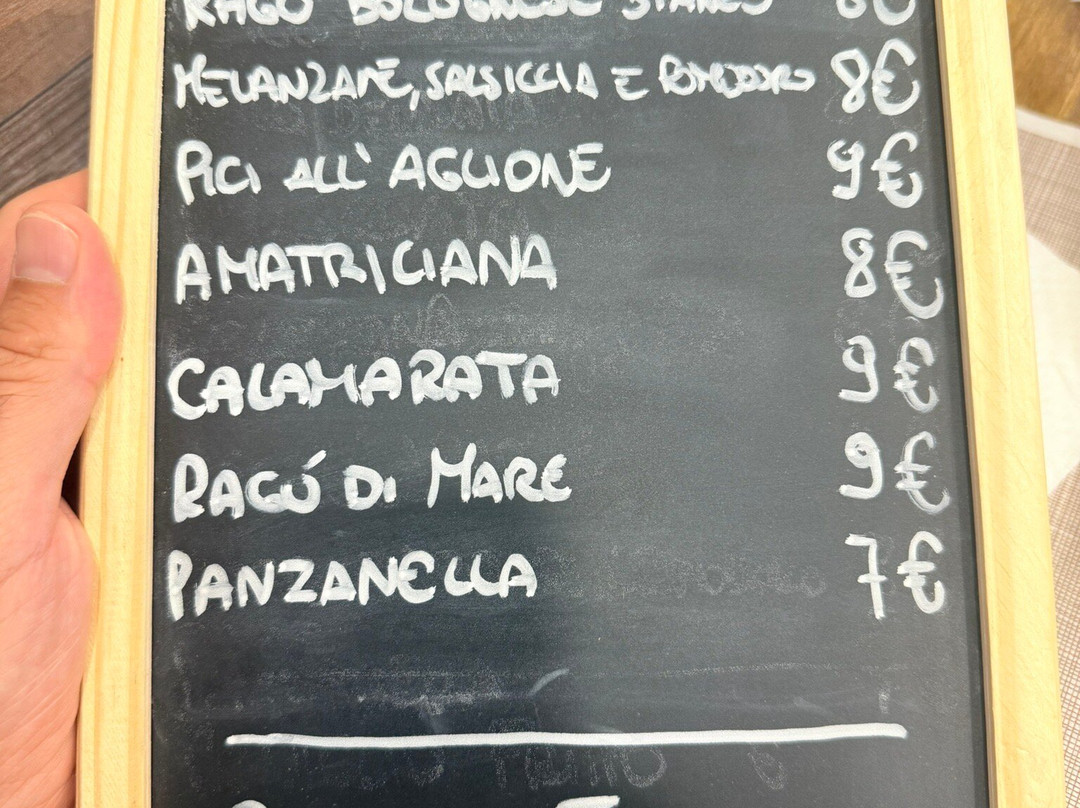 RAGÙ BOLOGNESE BIANCO 8€
MELANZANE, SALSICCIA E POMODORO 8€
PICI ALL'AGLIONE 9€
AMATRICIANA 8€
CALAMARATA 9€
RAGÚ DI MARE 9€
PANZANELLA 7€